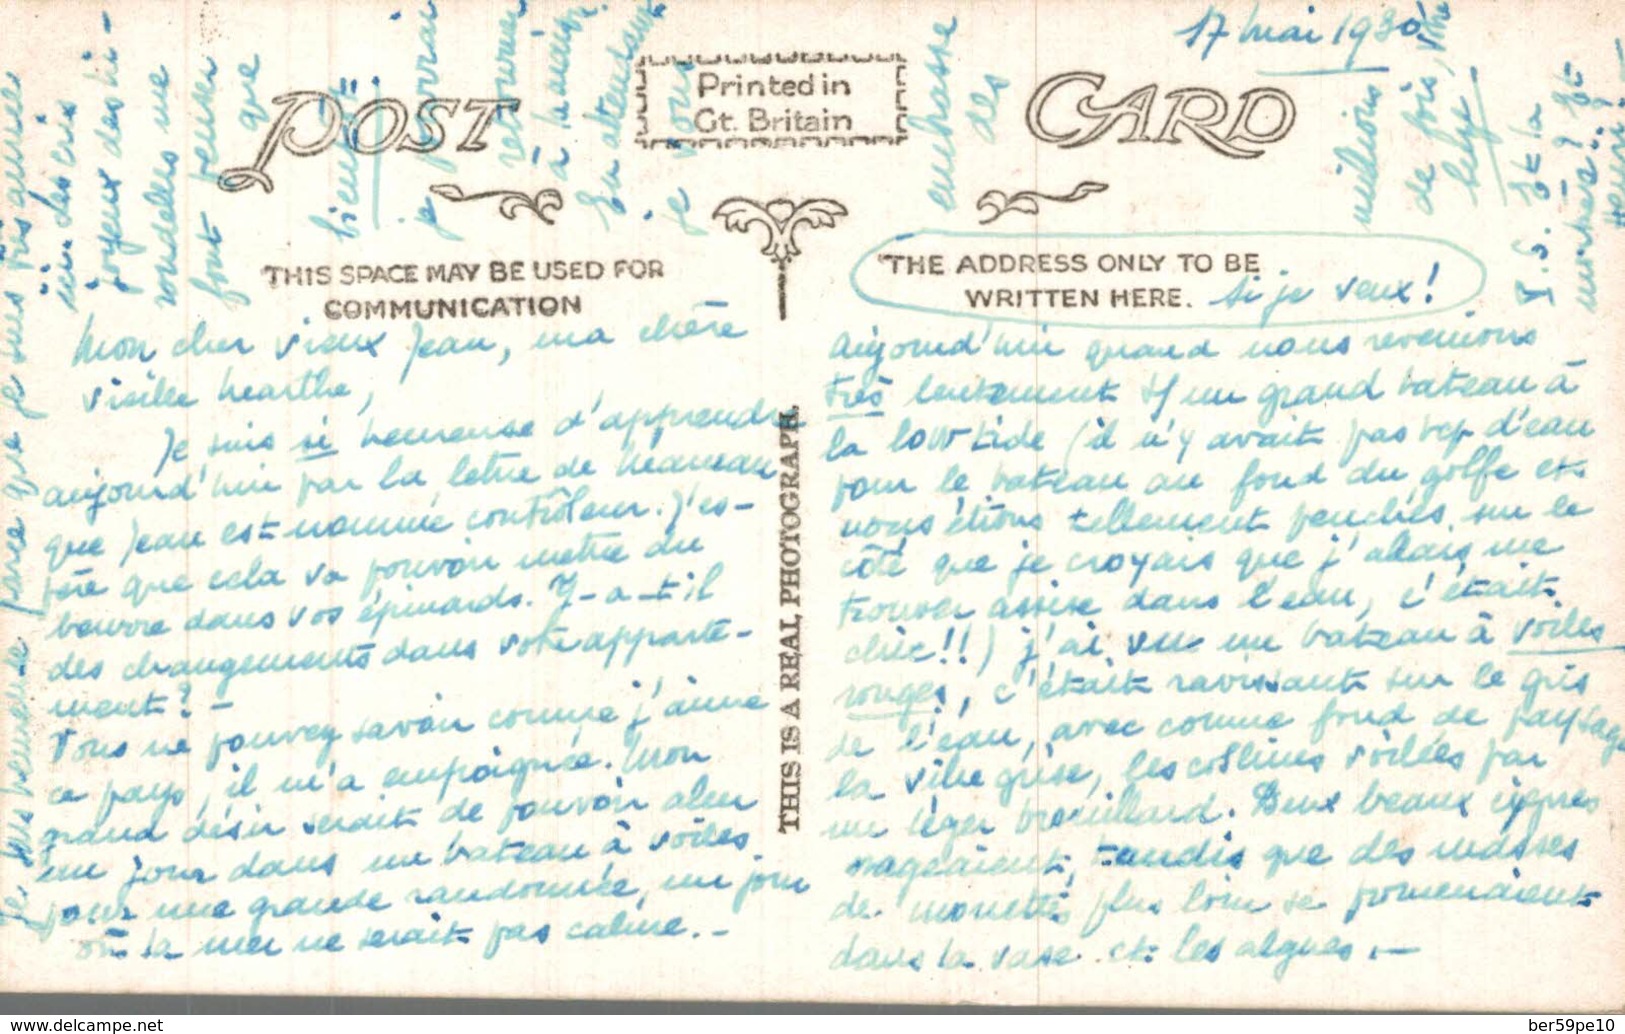 17 mai 1930
POST CARD
Printed in
Gt. Britain
THIS SPACE MAY BE USED FOR
COMMUNICATION
THE ADDRESS ONLY TO BE
WRITTEN HERE. si je veux!
Mon cher vieux Jean, ma chère
vieille Marthe,
Je suis si heureuse d'apprendre
aujourd'hui par la lettre de
que Jean est nommé contrôleur. J'es-
père que cela va pouvoir mettre du
beurre dans vos épinards. Y-a-t-il
des changements dans votre apparte-
ment? -
Vous ne pouvez savoir comme j'aime
ce pays, il m'a empoignée. Mon
grand désir serait de pouvoir aller
un jour dans un bateau à voiles
pour une grande randonnée, un jour
où la mer ne serait pas calme. -
THIS IS A REAL PHOTOGRAPH.
Aujourd'hui quand nous revenions
très lentement d'un grand bateau à
la low tide (il n'y avait pas bcp d'eau
pour le bateau au fond du golfe et
nous étions tellement penchés sur le
côté que je croyais que j'allais me
trouver assise dans l'eau, c'était
chic!!) j'ai vu un bateau à voiles
rouges, c'était ravissant sur le gris
de l'eau, avec comme fond de paysage
la ville grise, les collines voilées par
un léger brouillard. Deux beaux cygnes
nageaient, tandis que des masses
de mouettes plus loin se promenaient
dans la vase et les algues. -
Je suis heureuse parce que je suis
des cris
joyeux des hi-
rondelles me
font penser
que
bientôt
je pourrai
retourner
à la maison.
En attendant
je vous
embrasse
des
millions
de fois, votre
P.S. Et la